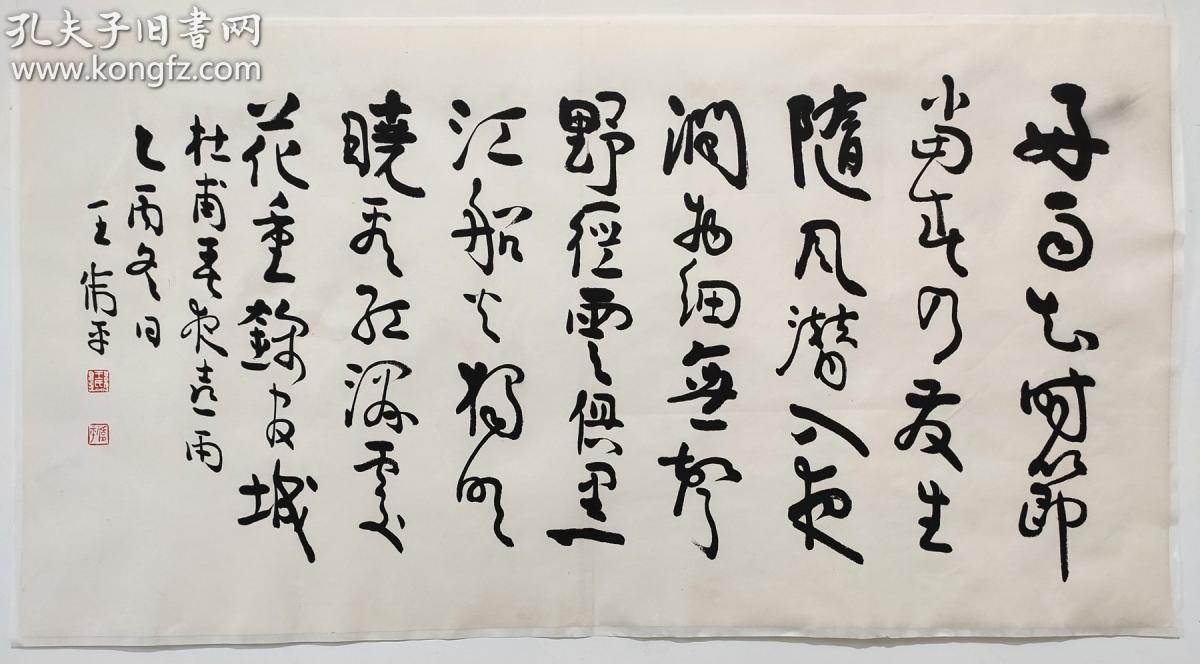 孔夫子旧书网
www.kongfz.com
好雨知時節
當春乃發生
隨風潛入夜
潤物細無聲
野徑雲俱黑
江船火獨明
曉看紅濕處
花重錦官城
杜甫春夜喜雨
乙酉冬日
王衛平